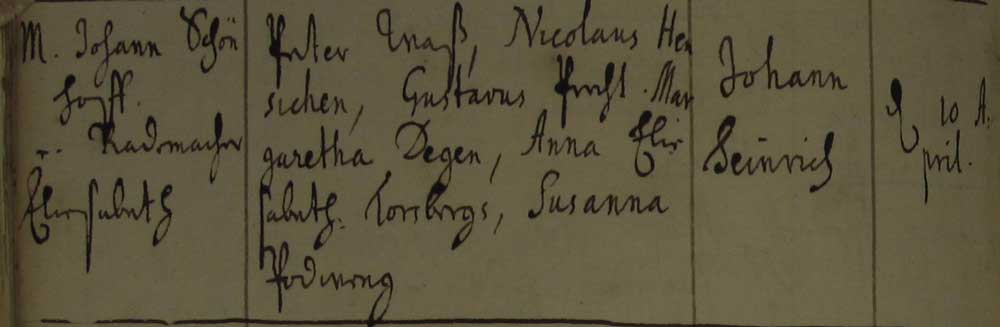 M. Johann Schön
hoff.
Radmacher
Elisabeth
Peter Naß, Nicolaus Hen
sichen, Gustavus Mar
garetha Degen, Anna Eli
sabeth. Torsbergs, Susanna
Podewerg
Johann
Heinrich
10 A.
pril.